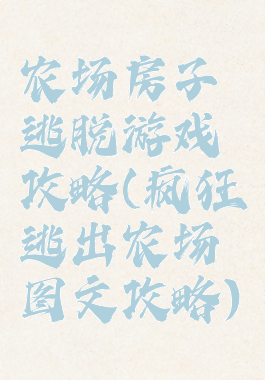 农场房子
逃脱游戏
攻略(疯狂
逃出农场
图文攻略)